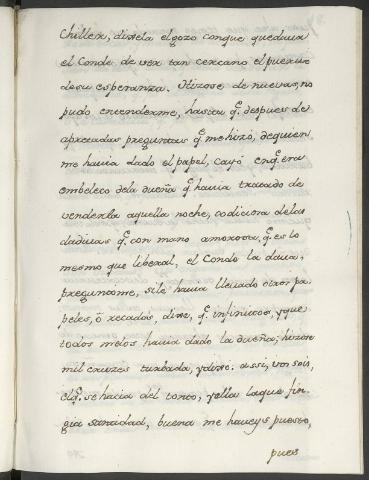 chillex, dixela el gozo conque quedaua
el Conde de ver tan cercano el puerto
de su esperanza. Hizose de nuevas, no
pudo entenderme, hasta q.^e despues de
apretadas preguntas q.^e me hizò, de quien
me havia dado el papel, cayò en q.^e era
embeleco dela dueña q.^e havia tratado de
venderla aquella noche, codiciosa delas
dadiuas q.^e con mano amorosa, q.^e es lo
mesmo que liberal, el Conde la daua,
preguntòme, sile havia lleuado otros pa-
peles, ò recados, dixe, q.^e infinitos, y que
todos melos havia dado la dueña; hizose
mil cruzes turbada, y dixo: assi, vos sois,
el q.^e se hacia del tonto, y ella la que fin-
gia santidad, buena me haueys puesto,
pues